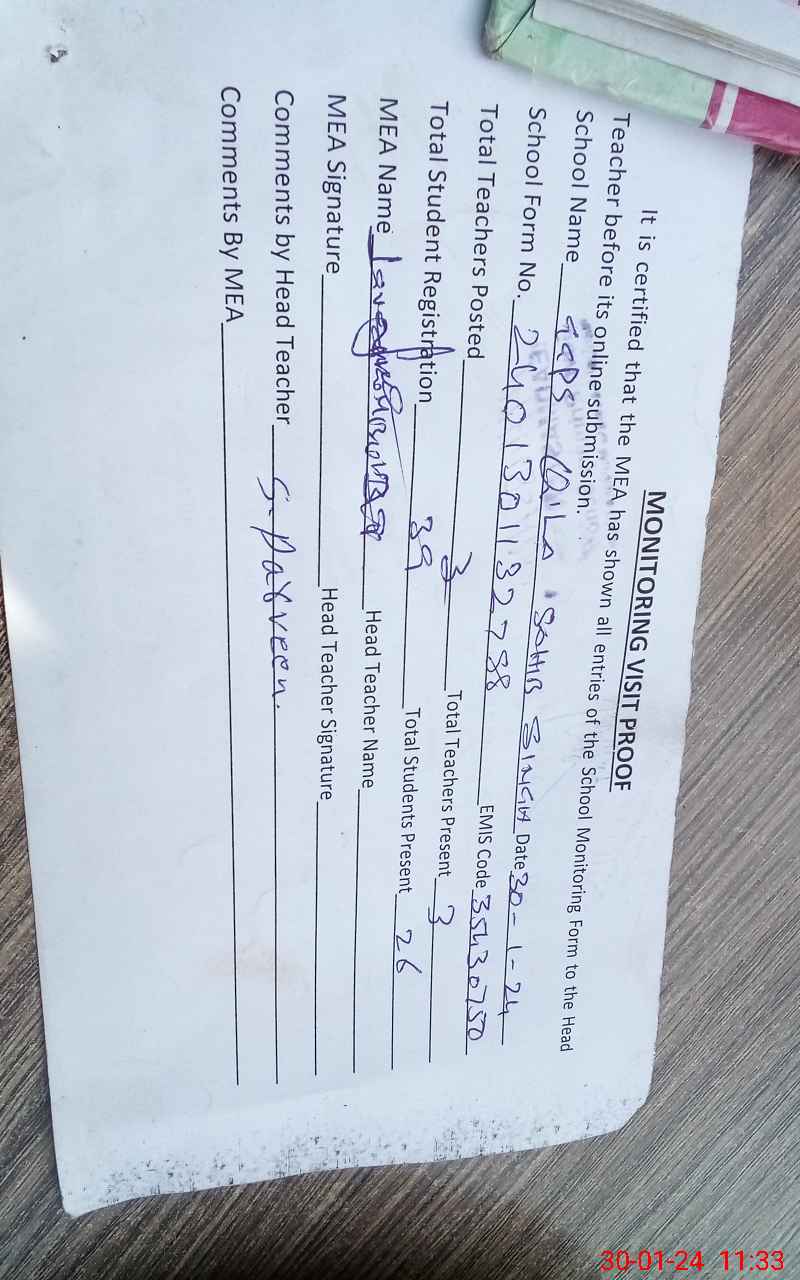 MONITORING VISIT PROOF
It is certified that the MEA has shown all entries of the School Monitoring Form to the Head
Teacher before its online submission.
School Name GGPS QILA SAHIB SINGH Date 30-1-24
School Form No. 2401301132788 EMIS Code 35430750
Total Teachers Posted 3 Total Teachers Present 3
Total Student Registration 39 Total Students Present 26
MEA Name Head Teacher Name
MEA Signature Head Teacher Signature
Comments by Head Teacher S. Parveen.
Comments By MEA
30-01-24 11:33